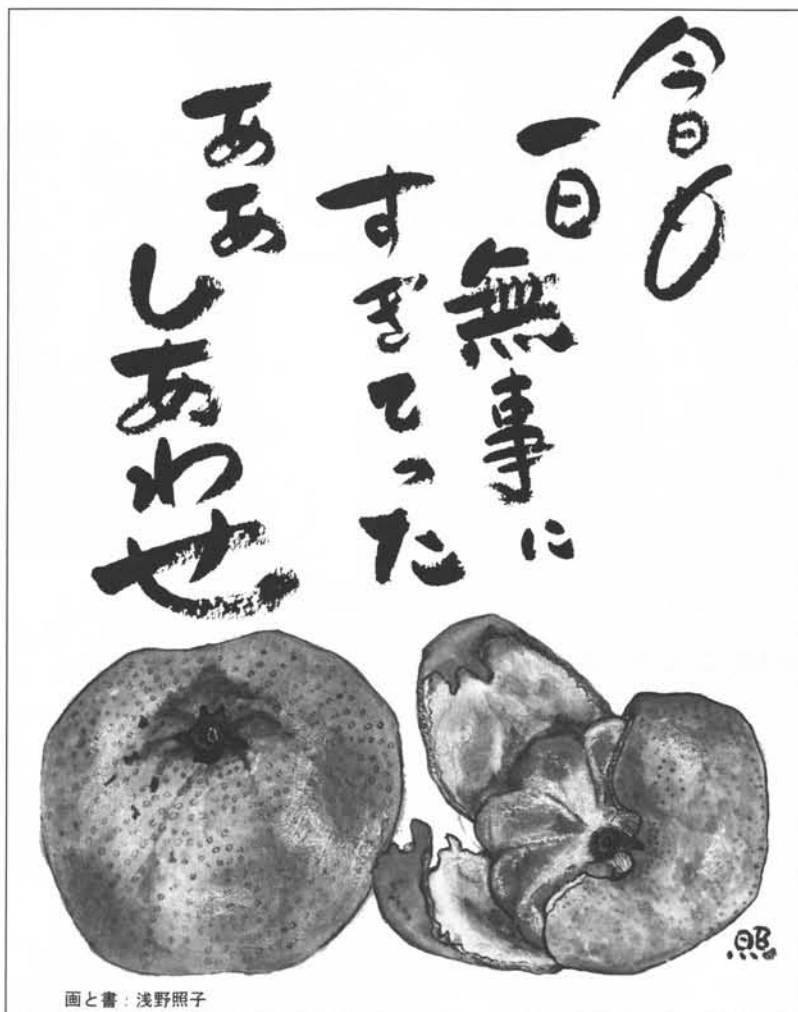 今日も
一日無事に
すぎてった
ああ
しあわせ
照
画と書：浅野照子